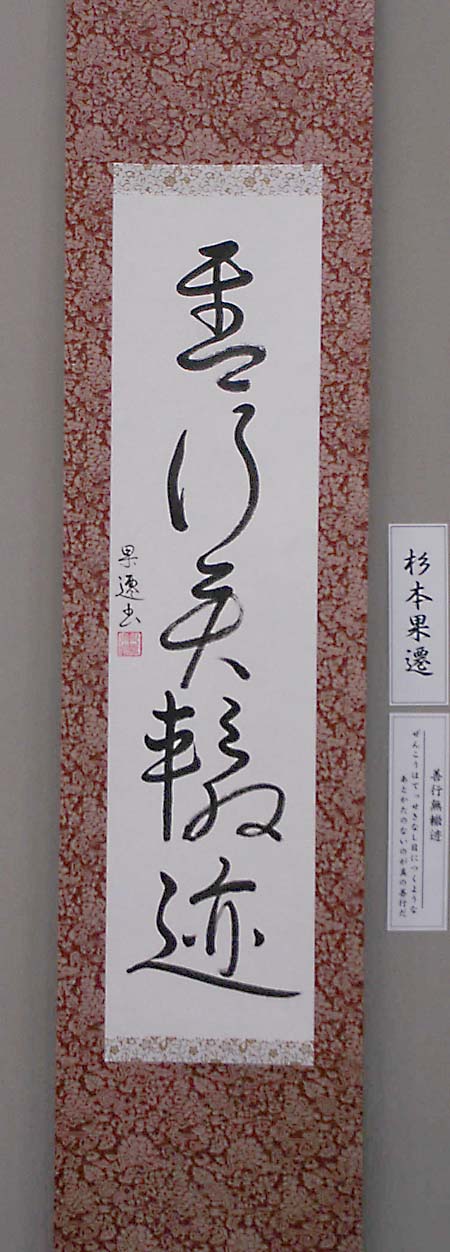 善行無轍迹
果遷書
杉本果遷
善行無轍迹
ぜんこうはてっせきなし目につくような
あとかたのないのが真の善行だ